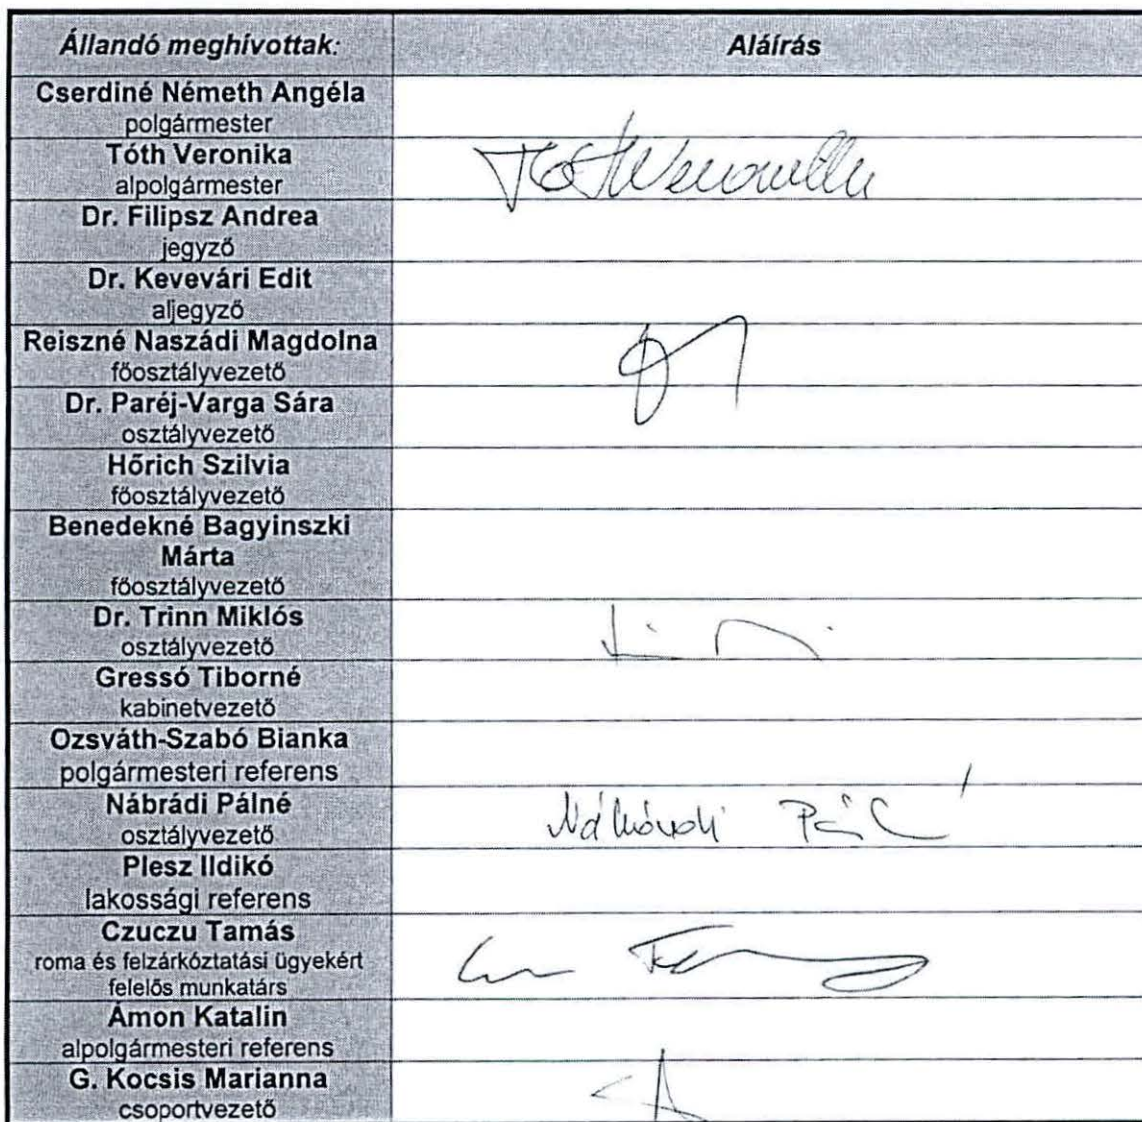 Állandó meghívottak: Aláírás
Cserdiné Németh Angéla
polgármester
Tóth Veronika
alpolgármester
Tóth Veronika
Dr. Filipsz Andrea
jegyző
Dr. Kevevári Edit
aljegyző
Reiszné Naszádi Magdolna
főosztályvezető
Dr. Paréj-Varga Sára
osztályvezető
Hőrich Szilvia
főosztályvezető
Benedekné Bagyinszki
Márta
főosztályvezető
Dr. Trinn Miklós
osztályvezető
Gressó Tiborné
kabinetvezető
Ozsváth-Szabó Bianka
polgármesteri referens
Nábrádi Pálné
osztályvezető
Nábrádi Pálné
Plesz Ildikó
lakossági referens
Czuczu Tamás
roma és felzárkóztatási ügyekért
felelős munkatárs
Ámon Katalin
alpolgármesteri referens
G. Kocsis Marianna
csoportvezető